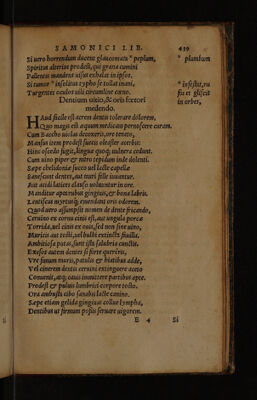 SAMONICI LIB. 439
Si vero horrendum ducent glaucomata * peplum, * plumbum
Spiritus alterius prodest, qui grana cumini
Pallentis mandens visus exhalat in ipsos,
Si tumor * insolitus typho se tollat inani, * infestus, ru
Turgentes oculos vili circumline cœno. fus et gliscit
Dentium vitio, & oris fœtori in orbes,
medendo.
HAud facile est acrem dentis tolerare dolorem,
Quo magis est æquum medicam pernoscere curam.
Cum Baccho
Mansus item prodest succis oleaster acerbis:
Hinc obscœdo fugit, linguæ quoq; vulnera cedunt.
Cum vino piper & nitro tepidum inde dolenti.
Sæpe chelidoniæ succo vel lacte capellæ
Sanescunt dentes, aut tauri felle iuvantur.
Aut acidi latices clauso volvuntur in ore.
Manditur apta rubus gingivis, & bona labris.
Lentiscus myrtusq; emendant oris odorem.
Quod vero assumpsit nomen de dente fricando,
Cervino ex cornu cinis est, aut ungula porcæ
Torrida, vel cinis ex ovis, sed non sine vino,
Muricis aut tosti, vel bulbi extincta favilla.
Ambitiosa putas, sunt ista salubria cunctis.
Exesos autem dentes si forte quereris,
Ure fimum muris, patulis & hiatibus adde,
Vel cinerem dentis cervini extinguere aceto
Conveniet, atq; cavis immittere partibus apte.
Prodest & pulvis lumbrici corpore tosto.
Ora ambusta cibo sanabis lacte canino.
Sæpe etiam gelida gingivas collue lympha,
Dentibus ut firmum possis servare vigorem.
E 4 Si